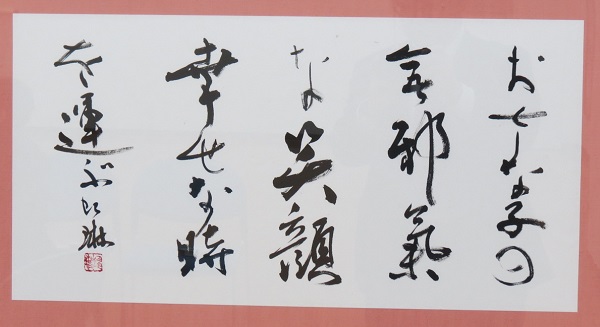 おさな子の
無邪氣
な笑顔
幸せな時
を運ぶ